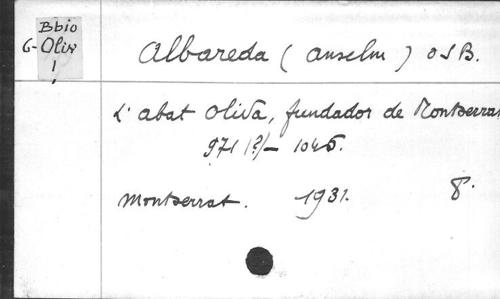 Bbio
G-Oliv
1,
Albareda (Anselm) OSB.
L'abat Oliva, fundador de Montserrat
971 (?)- 1046.
Montserrat. 1931. 8º.